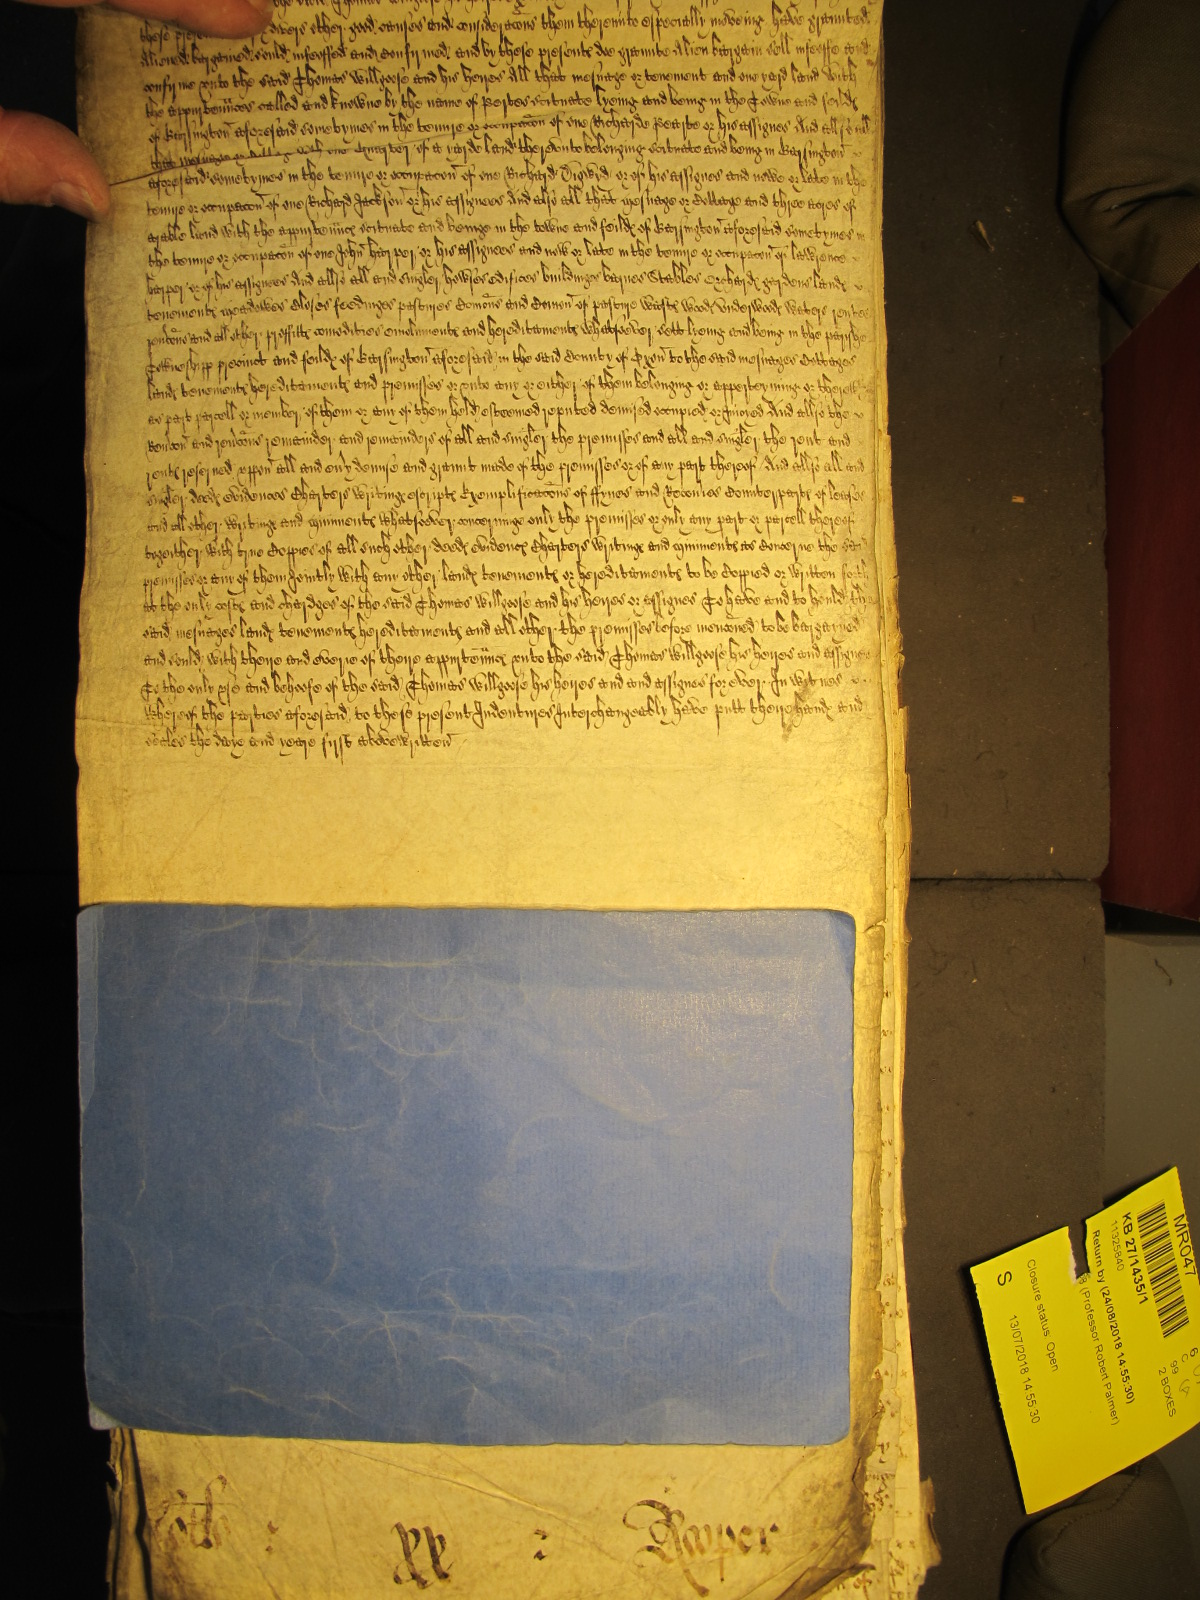 the said Thomas Willgoose
these divers other good causes and consideracons them thereunto especially moveing have graunted
aliened bargained sould infeoffed and confirmed and by these presents doe graunte alien bargain sell infeoffe and
confirme unto the said Thomas Willgoose and his heires All that mesuage or tenement and one yard land with
the appurtennces called and knowne by the name of scituate lyeing and being in the Towne and feildes
of aforesaid sometymes in the tenure or occupacon of one Richarde or his assignes And all
that mesuage or with one quarter of a yarde land thereunto belonging scituate and being in
aforesaid sometymes in the tenure or occupacon of one Richard or of his assignes and nowe or late in the
tenure or occupacon of one Richard Jackson or his assignees And also all that mesuage or Cottage and three acres of
arable land with the appurtennces scituate and beinge in the towne and feildes of aforesaid sometymes in
the tenure or occupacon of one John Harper or his assignees and now or late in the tenure or occupacon of Lawrence
Harper or of his assignes And allso all and singler howses edifices buildings barnes Stables Orchards gardens lands
tenements meadowes Closes feedinges pastures Comons and Comon of pasture wasts woods Underwoods waters rents
revercons and all other proffitts comodities emoluments and hereditaments whatsoever sett lyeing and being in the parishe
Towneshipp precinct and feilds of aforesaid in the said County of Oxon to the said mesuages Cottages
lands tenements hereditaments and premisses or unto any or either of them belonging or apperteyning or therewith
as part parcell or member of them or any of them held esteemed reputed demised occupied or injoyed And allso the
Revercon and revercons remainder and remainders of all and singler the premisses and all and singler the rent and
rents reserved uppon all and every demise and graunt made of the premisses or of any part thereof And allso all and
singler deeds evidences Charters writings escripts Exemplificacons of ffynes and Recoveries Counterparts of leases
and all other writings and muniments whatsoever concerninge only the premisses or only any part or parcell thereof
togeither with true Coppies of all such other deeds evidences Charters writings and muniments as Concerne the said
premisses or any of them Joyntly with any other lands tenements or hereditaments to be Coppied or written forth
at the only costs and chardges of the said Thomas Willgoose and his heires or assignes To have and to hould the
said mesuages lands tenements hereditaments and all other the premisses before menconed to be bargayned
and sould with theire and everie of theire appurtennces unto the said Thomas Willgoose his heires and assignes
To the only use and behoofe of the said Thomas Willgoose his heires and and assignes for ever In wytnes
whereof the parties aforesaid to these present Indentures Interchangeably have putt theire hands and
seales the daye and yeare first abovewritten
Rotlo : xx : Roper
MR047
KB 27/1435/1
11325840
Return by (24/08/2018 14:55:30)
(Professor Robert Palmer)
Closure status: Open
S 13/07/2018 14:55:30
2 BOXES